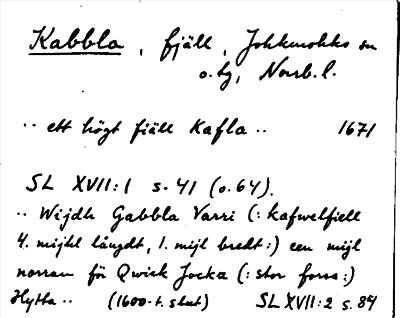 Kabbla, fjäll, Jokkmokks sn
o. tg, Norrb. l.
·· ett högt fiäll Kafla ·· 1671
SL XVII:1 s. 41 (o. 64).
·· Wijdh Gabbla Varri (: kafwelfiell
4. mijhl långdt, 1. mijl bredt :) een mijl
norran för Qwick Jocka (: stor forss :)
Hytta ·· (1600-t. slut) SL XVII:2 s. 84